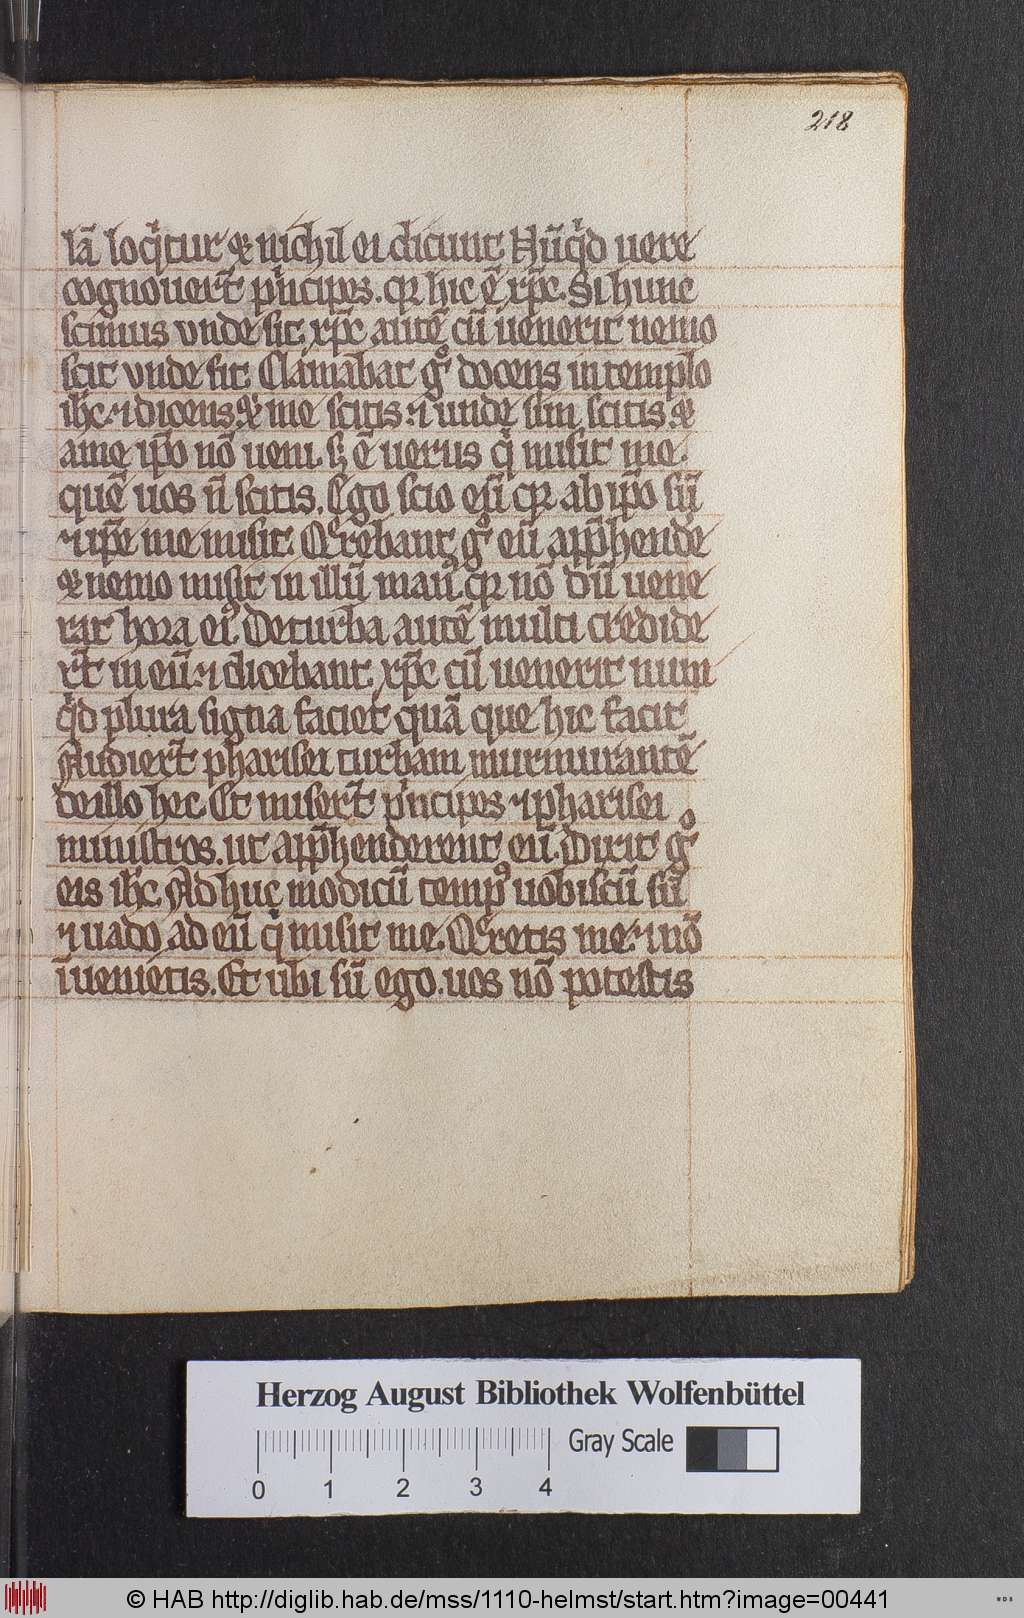 218
lā loqͥtur ⁊ nichil ei dicunt. Nūqͥd uere
cognouerūt pͥncipes. qꝛ hic ē xp̄c. Si hunc
scimus vnde sit. xp̄c autē cū uenerit nemo
scit vnde sit. Clamabat gͦ docens in templo
ih̄c. ⁊ dicens. ⁊ me scitis. ⁊ unde sim scitis. ⁊
a me ip̄o nō ueni. sꝫ ē uerus qͥ misit me.
quē uos n̄ scitis. Ego scio eū qꝛ ab ip̄o sū
⁊ ip̄e me misit. Qͣrebant gͦ eū app̄hende
⁊ nemo misit in illū manꝰ. qꝛ nō dū uene
rat hora eiꝰ. De turba autē multi credide
rt̄ in eū. ⁊ dicebant. xp̄c cū uenerit num
qͥd plura signa faciet quā que hic facit
Audiert̄ pharisei turbam murmurantē
de illo hec. Et misert̄ pͥncipes ⁊ pharisei
ministros. ut app̄henderent eū. Dixit gͦ
eis ih̄c. Ad huc modicū tempꝰ uobiscū sū
⁊ uado ad eū qͥ misit me. Qͣretis me. ⁊ nō
īuenietis. Et ubi sū ego. uos nō potestis
Herzog August Bibliothek Wolfenbüttel
Gray Scale
0 1 2 3 4
© HAB http://diglib.hab.de/mss/1110-helmst/start.htm?image=00441